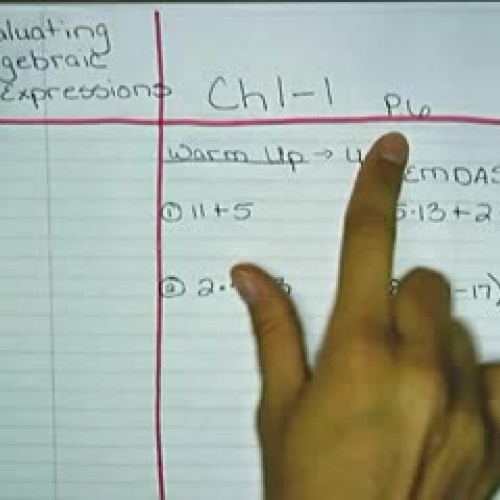 aluating
gebraic
Expressions
Ch 1-1 P.6
Warm Up → 4
EMDAS
① 11 + 5
5·13 + 2
② 2·
-17)